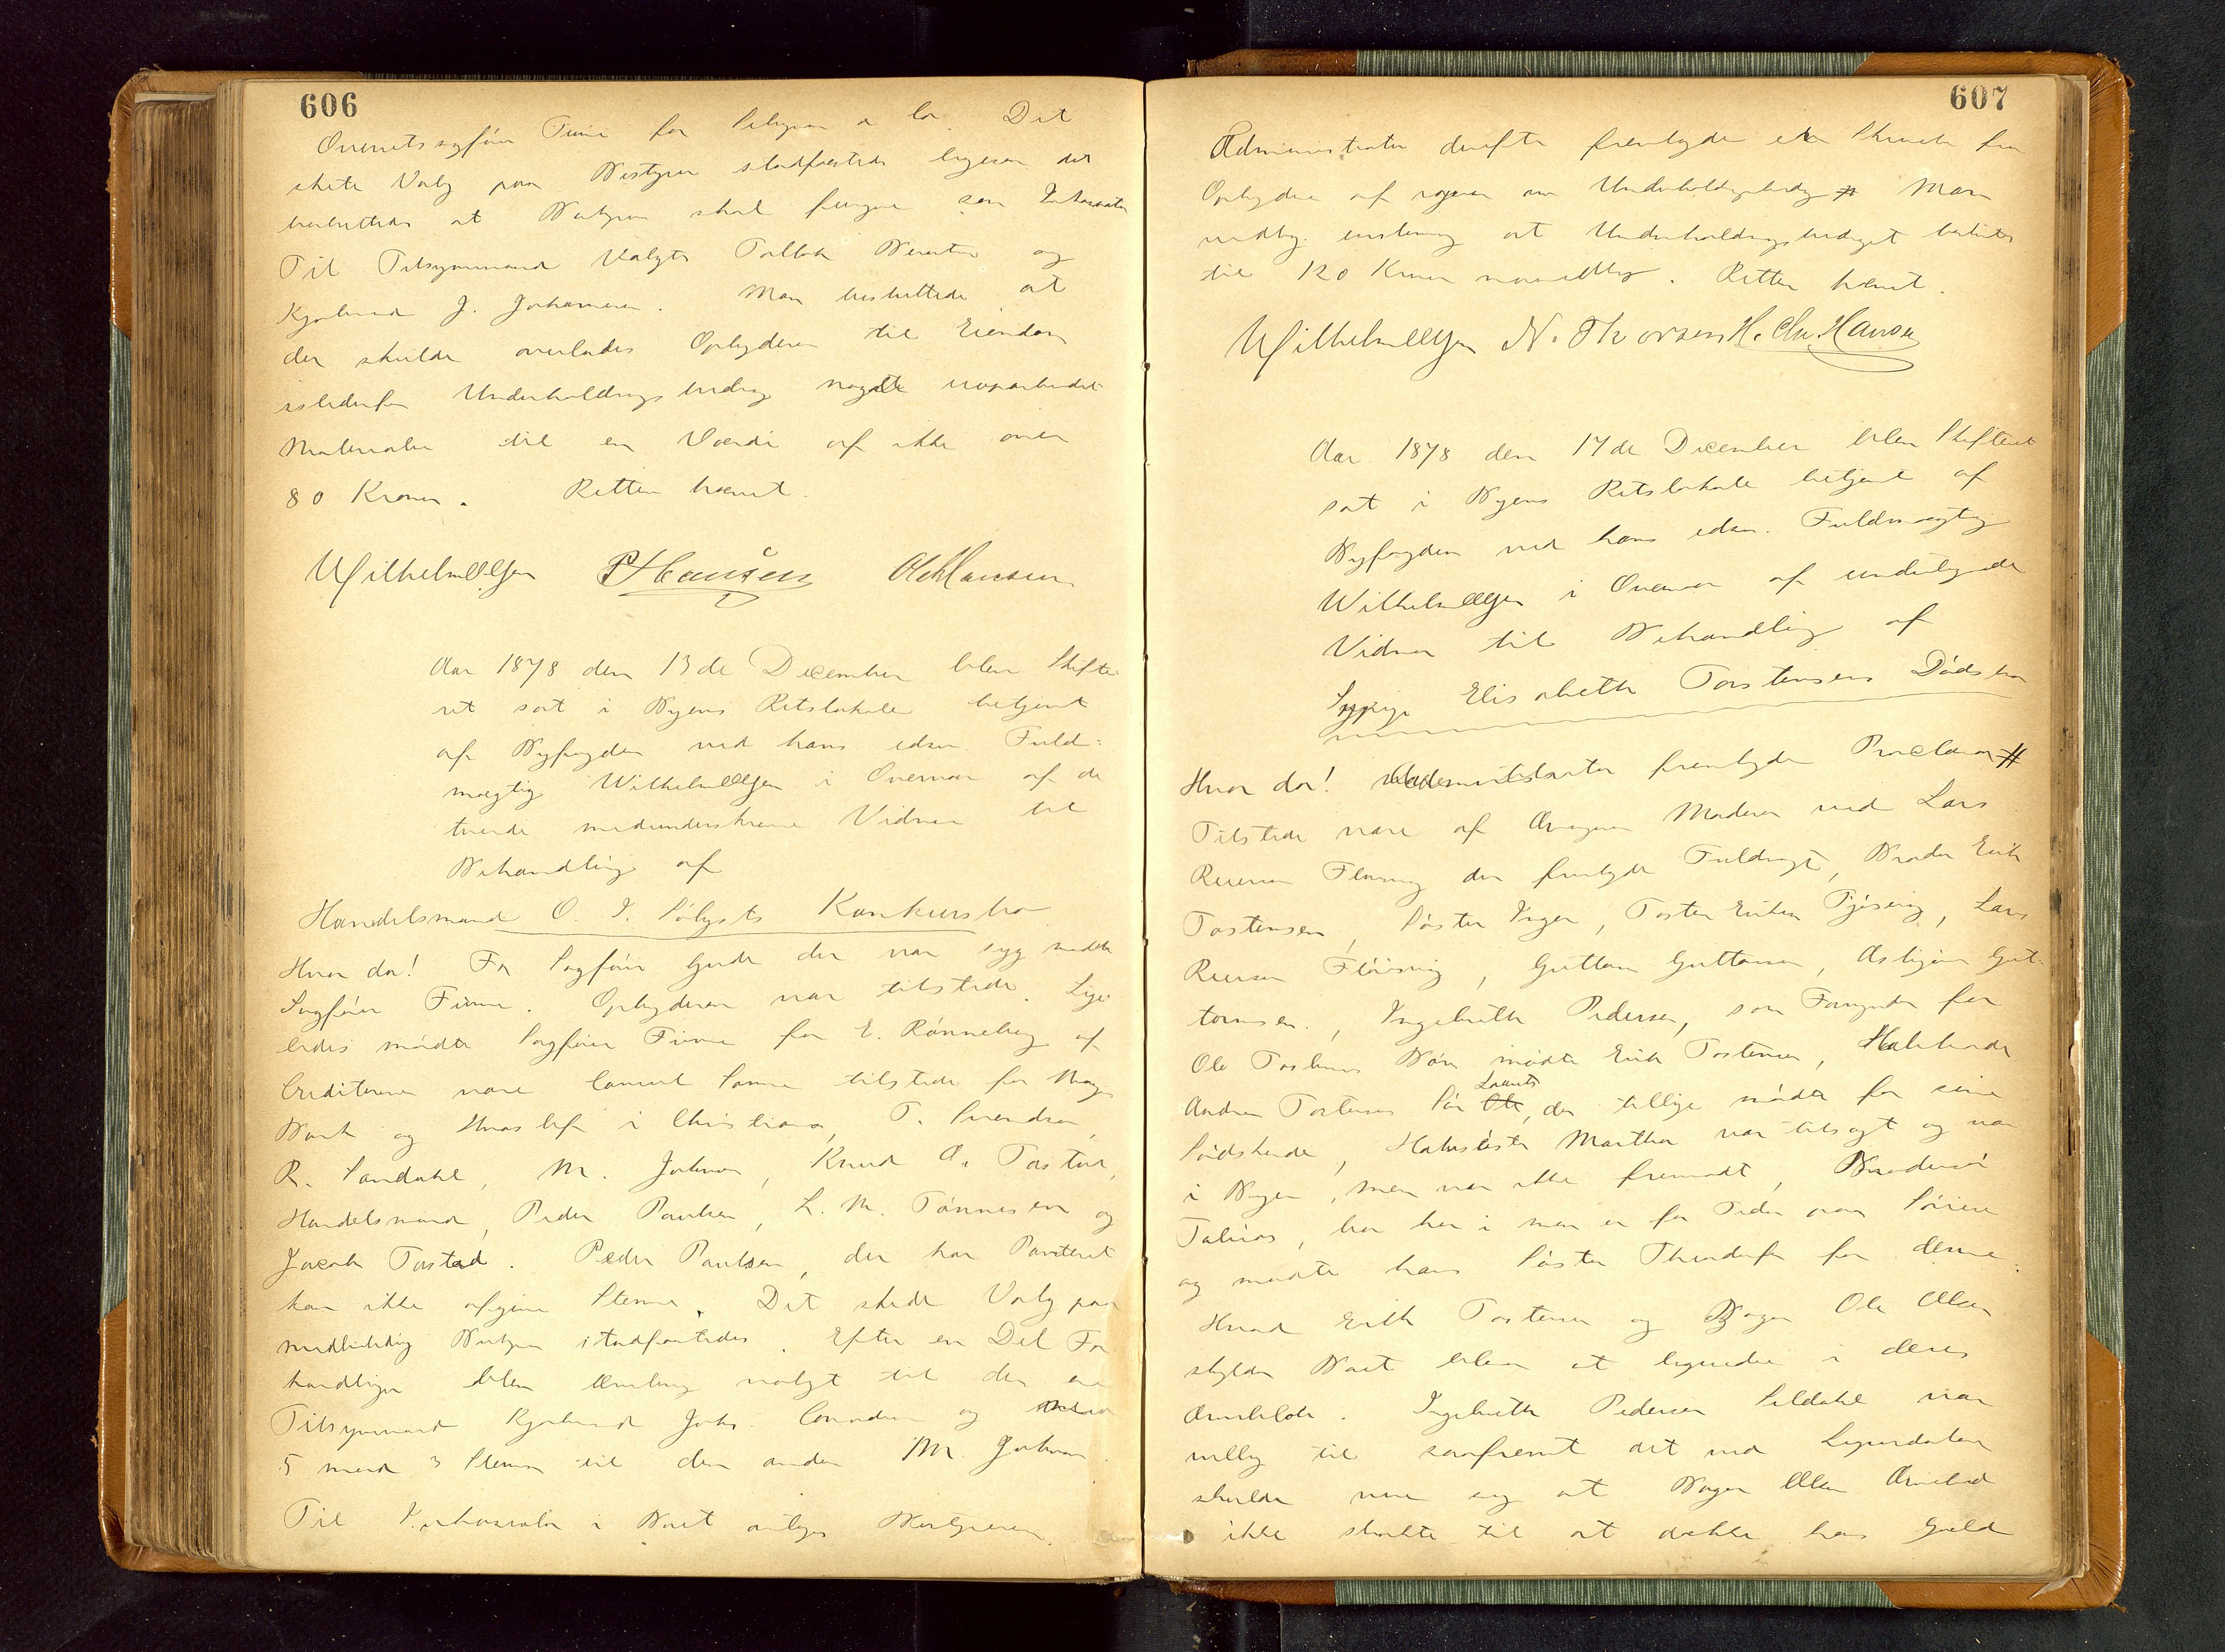 606
Overretssagfører Finne for Det
skete Valg paa Bestyrer stadfæstedes ligesom det
besluttedes at Bestyreren skal fungere som Inkassator
Til Tilsynsmænd valgtes og
Kjøbmand J. Johannesen. Man besluttede at
der skulde overlades Opbyderen til Eiendom
istedenfor Underholdningsbidrag nogle uoparbeidet
Materialer til en Værdi af ikke over
80 Kroner. Retten hævet.
Wilhelm Olsen P Hansen Ole Hansen
Aar 1878 den 13de December blev Skifte
ret sat i Byens Retslokale betjent
af Byfogden ved hans edsv. Fuld-
mægtig Wilhelm Olsen i Overvær af de
tvende medunderskrevne Vidner til
Behandling af
Handelsmand O. I. Sølyst's Konkursbo
Hvor da! For Sagfører Gude der var syg mødte
Sagfører Finne. Opbyderen var tilstede. Lige
ledes mødte Sagfører Finne for E. Rønneberg af
Creditorerne vare Consul tilstede for
og i Christiania, T. Svendsen,
R. Sandahl, M. Johnsen, Knud A. Tastad,
Handelsmand, Peder Paulsen, L. M. Tønnesen og
Jacob Tastad. Peder Paulsen, der har Panteret
kan ikke afgive Stemme. Det skede Valg paa
midlertidig Bestyrer stadfæstedes. Efter en Del For
handlinger blev valgt til den ene
Tilsynsmand Kjøbmand Johs. og
5 mod 3 Stemmer til den anden M. Johnsen.
Til Inkassator i Boet antages Bestyreren
607
Administrator derefter fremlagde en Skrivelse fra
Opbyderen af om Underholdningsbidrag # Man
vedtog indstilling at Underholdningsbidraget besluttes
til 120 Kroner maanedlig. Retten hævet.
Wilhelm Olsen N. Thorsen H. Chr. Hansen
Aar 1878 den 17de December blev Skifteret
sat i Byens Retslokale betjent af
Byfogden ved hans edsv. Fuldmægtig
Wilhelm Olsen i Overvær af undertegnede
Vidner til Behandling af
Sypige Elisabeth Torstensens Dødsbo
Hvor da! Administrator fremlagde Proclama #
Tilstede vare af Arvingerne Moderen ved Lars
Reiersen der fremlagde Fuldmagt, Broder Erik
Tostensen, Søster Inger, Tosten Eriksen, Lars
Reiersen, Guttorm Guttormsen, Asbjørn Gut-
tormsen, Ingebreth Pedersen, som Formynder for
Ole Tostensens Børn mødte Erik Tostensen, Halvbroder
Andreas Tostensens Søn Laurits, der tillige møder for sine
Sødskende, Halvsøster Martha var tilsagt og var
i Byen, men var ikke fremmødt, Brodersøn
Tobias, bor her i men er for Tiden paa Søreise
og mødte hans Søster for denne.
Hvad Erik Tostensen og Bager Ole Olsen
skylder Boet blev at lignedes i deres
Arvelodder. Ingebreth Pedersen Seldahl var
villig til saafremt det ved Liqvidationen
skulde vise sig at Bager Olsen Arvelod
ikke strakte til at dække hans Gjeld